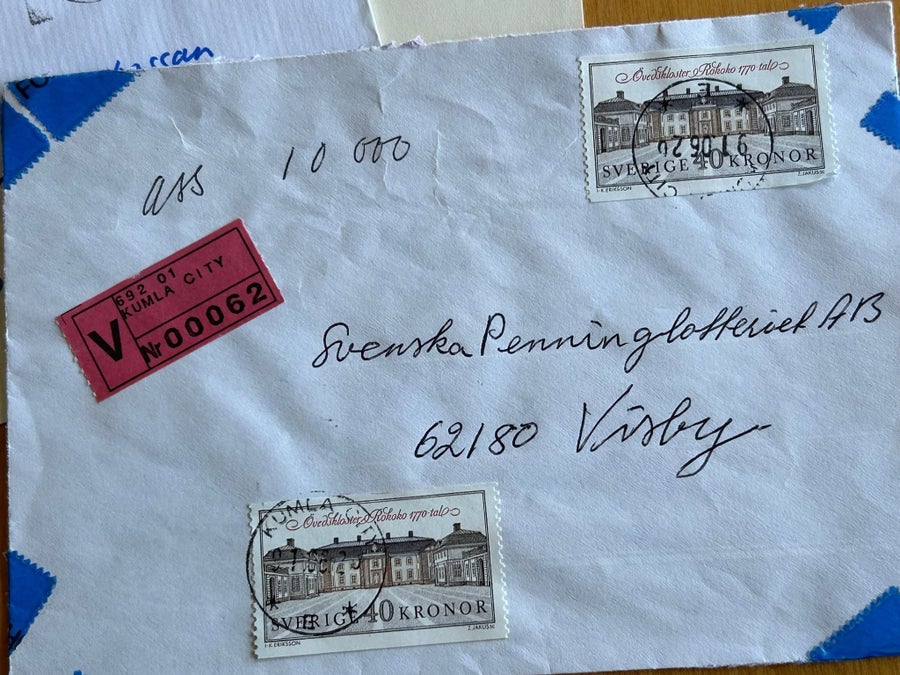 Övedskloster Rokoko 1770-tal
SVERIGE 40 KRONOR
I-K. ERIKSSON
Z. JAKUS SC
ass 10 000
692 01
KUMLA CITY
V Nr 00062
Svenska Penninglotteriet AB
62180 Visby
KUMLA
Övedskloster Rokoko 1770-tal
SVERIGE 40 KRONOR
I-K. ERIKSSON
Z. JAKUS SC